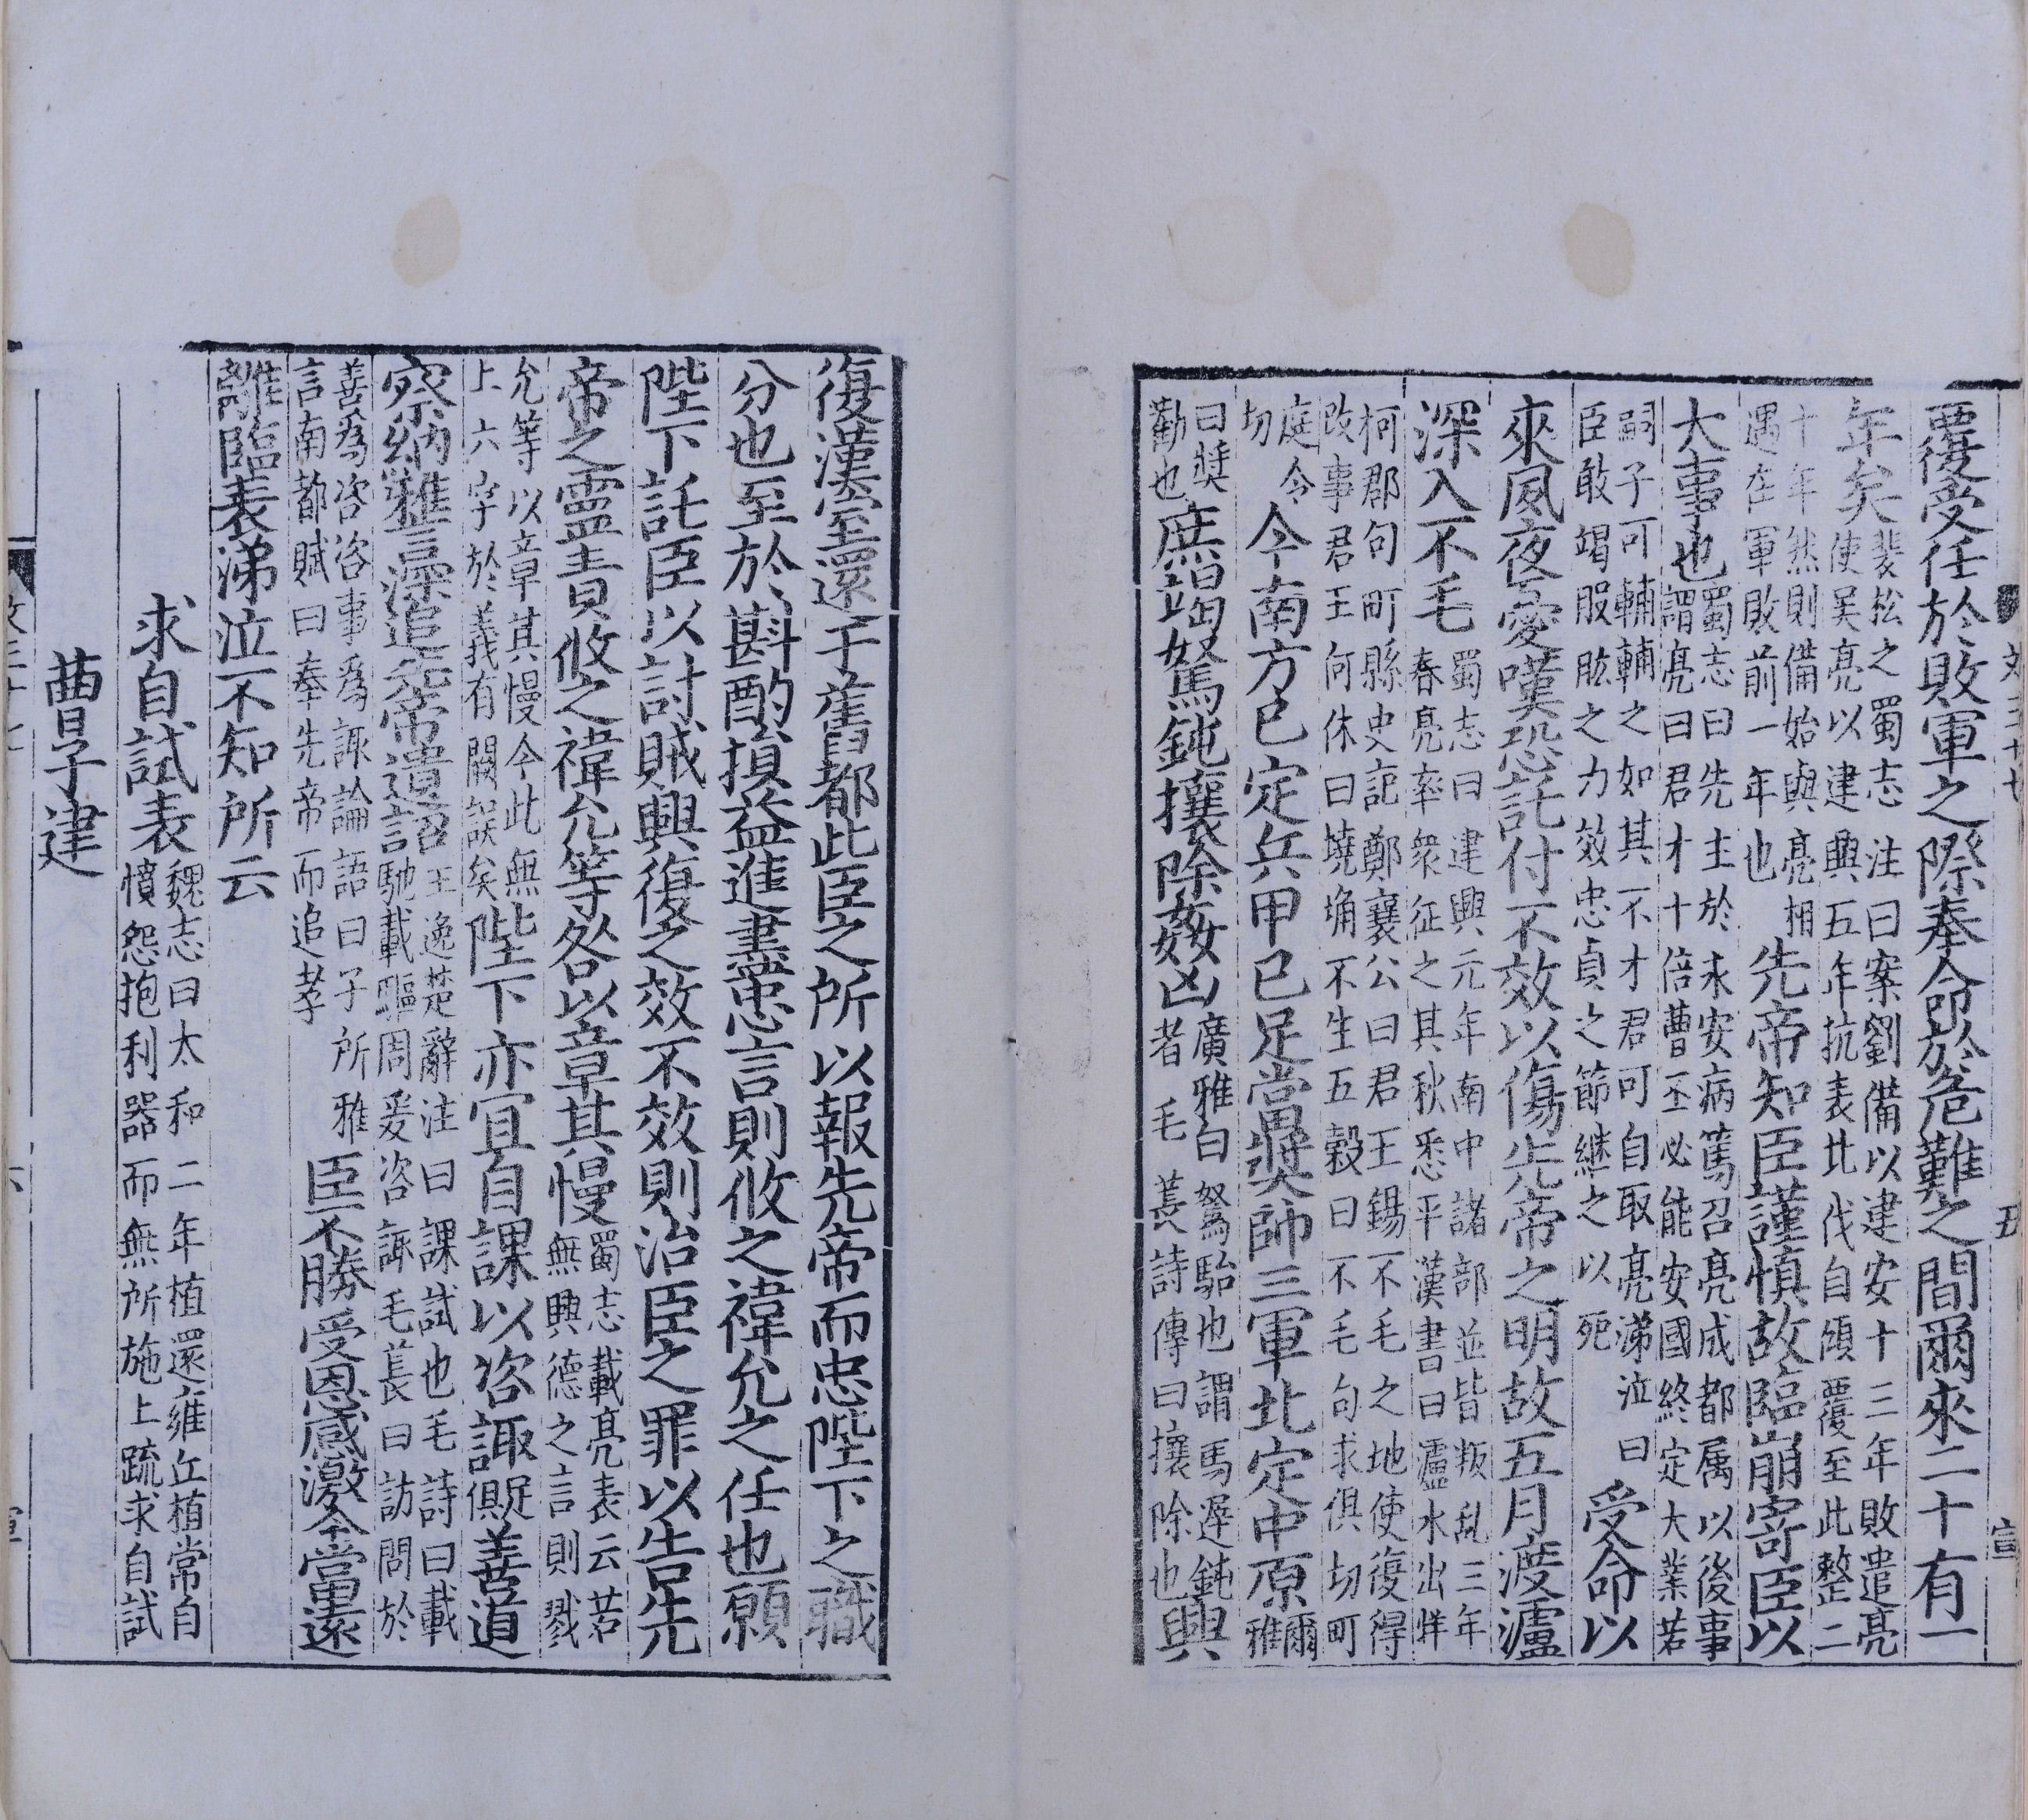 覆受任於敗軍之際奉命於危難之間爾來二十有一
年矣裴松之蜀志注曰案劉備以建安十三年敗遣亮
使吳亮以建興五年抗表北伐自傾覆至此整二
十年然則備始與亮相
遇在軍敗前一年也先帝知臣謹慎故臨崩寄臣以
大事也蜀志曰先主於永安病篤召亮成都属以後事
謂亮曰君才十倍曹丕必能安國終定大業若
嗣子可輔輔之如其不才君可自取亮涕泣曰
臣敢竭股肱之力效忠貞之節継之以死受命以
來夙夜憂嘆恐託付不效以傷先帝之明故五月渡瀘
深入不毛蜀志曰建興元年南中諸部並皆叛亂三年
春亮率衆征之其秋悉平漢書曰瀘水出牂
柯郡句町縣史記鄭襄公曰君王錫不毛之地使復得
改事君王何休曰墝埆不生五穀曰不毛句求俱切町
庭令
切今南方已定兵甲已足當奬帥三軍北定中原爾
雅
曰奨
勸也庶竭駑鈍攘除姦凶廣雅曰駑駘也謂馬遲鈍
者毛萇詩傳曰攘除也興
復漢室還于舊都此臣之所以報先帝而忠陛下之職
分也至於斟酌損益進盡忠言則攸之禕允之任也願
陛下託臣以討賊興復之效不效則治臣之罪以告先
帝之靈責攸之禕允等咎以章其慢蜀志載亮表云若
無興德之言則戮
允等以章其慢今此無
上六字於義有闕誤矣陛下亦宜自課以咨諏足
俱善道
察納雅言深追先帝遺詔王逸楚辭注曰課試也毛詩曰載
馳載驅周爰咨諏毛萇曰訪問於
善為咨咨事為諏論語曰子所雅
言南都賦曰奉先帝而追孝臣不勝受恩感激今當遠
離臨表涕泣不知所云
求自試表魏志曰太和二年植還雍丘植常自
憤怨抱利器而無所施上疏求自試
曹子建